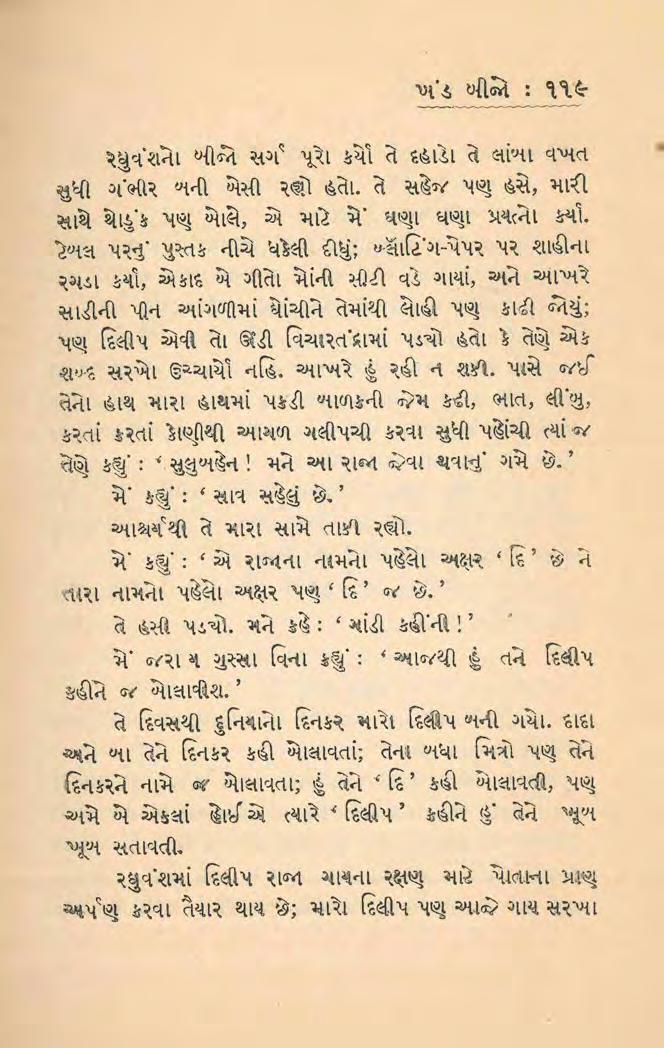 ખંડ બીજો : ૧૧૯
રઘુવંશનો બીજો સર્ગ પૂરો કર્યો તે દહાડો તે લાંબા વખત
સુધી ગંભીર બની બેસી રહ્યો હતો. તે સહેજ પણ હસે, મારી
સાથે થોડુંક પણ બોલે, એ માટે મેં ઘણા ઘણા પ્રયત્નો કર્યા.
ટેબલ પરનું પુસ્તક નીચે ધકેલી દીધું; બ્લૉટિંગ-પેપર પર શાહીના
રગડા કર્યા, એકાદ બે ગીતો મોંની સીટી વડે ગાયાં, અને આખરે
સાડીની પીન આંગળીમાં ઘોંચીને તેમાંથી લોહી પણ કાઢી જોયું;
પણ દિલીપ એવી તો ઊંડી વિચારતંદ્રામાં પડ્યો હતો કે તેણે એક
શબ્દ સરખો ઉચ્ચાર્યો નહિ. આખરે હું રહી ન શકી. પાસે જઈ
તેનો હાથ મારા હાથમાં પકડી બાળકની જેમ કઢી, ભાત, લીંબુ,
કરતાં કરતાં કોણીથી આગળ ગલીપચી કરવા સુધી પહોંચી ત્યાં જ
તેણે કહ્યું : ‘ સુલુબહેન ! મને આ રાજા જેવા થવાનું ગમે છે. ’
મેં કહ્યું : ‘ સાવ સહેલું છે. ’
આશ્ચર્યથી તે મારા સામે તાકી રહ્યો.
મેં કહ્યું : ‘ એ રાજાના નામનો પહેલો અક્ષર ‘ દિ ’ છે ને
તારા નામનો પહેલો અક્ષર પણ ‘ દિ ’ જ છે. ’
તે હસી પડ્યો. મને કહે : ‘ ગાંડી કહીંની ! ’
મેં જરા ય ગુસ્સા વિના કહ્યું : ‘ આજથી હું તને દિલીપ
કહીને જ બોલાવીશ. ’
તે દિવસથી દુનિયાનો દિનકર મારો દિલીપ બની ગયો. દાદા
અને બા તેને દિનકર કહી બોલાવતાં; તેના બધા મિત્રો પણ તેને
દિનકરને નામે જ બોલાવતા; હું તેને ‘ દિ ’ કહી બોલાવતી, પણ
અમે બે એકલાં હોઈએ ત્યારે ‘ દિલીપ ’ કહીને હું તેને ખૂબ
ખૂબ સતાવતી.
રઘુવંશમાં દિલીપ રાજા ગાયના રક્ષણ માટે પોતાના પ્રાણ
અર્પણ કરવા તૈયાર થાય છે; મારો દિલીપ પણ આજે ગાય સરખા